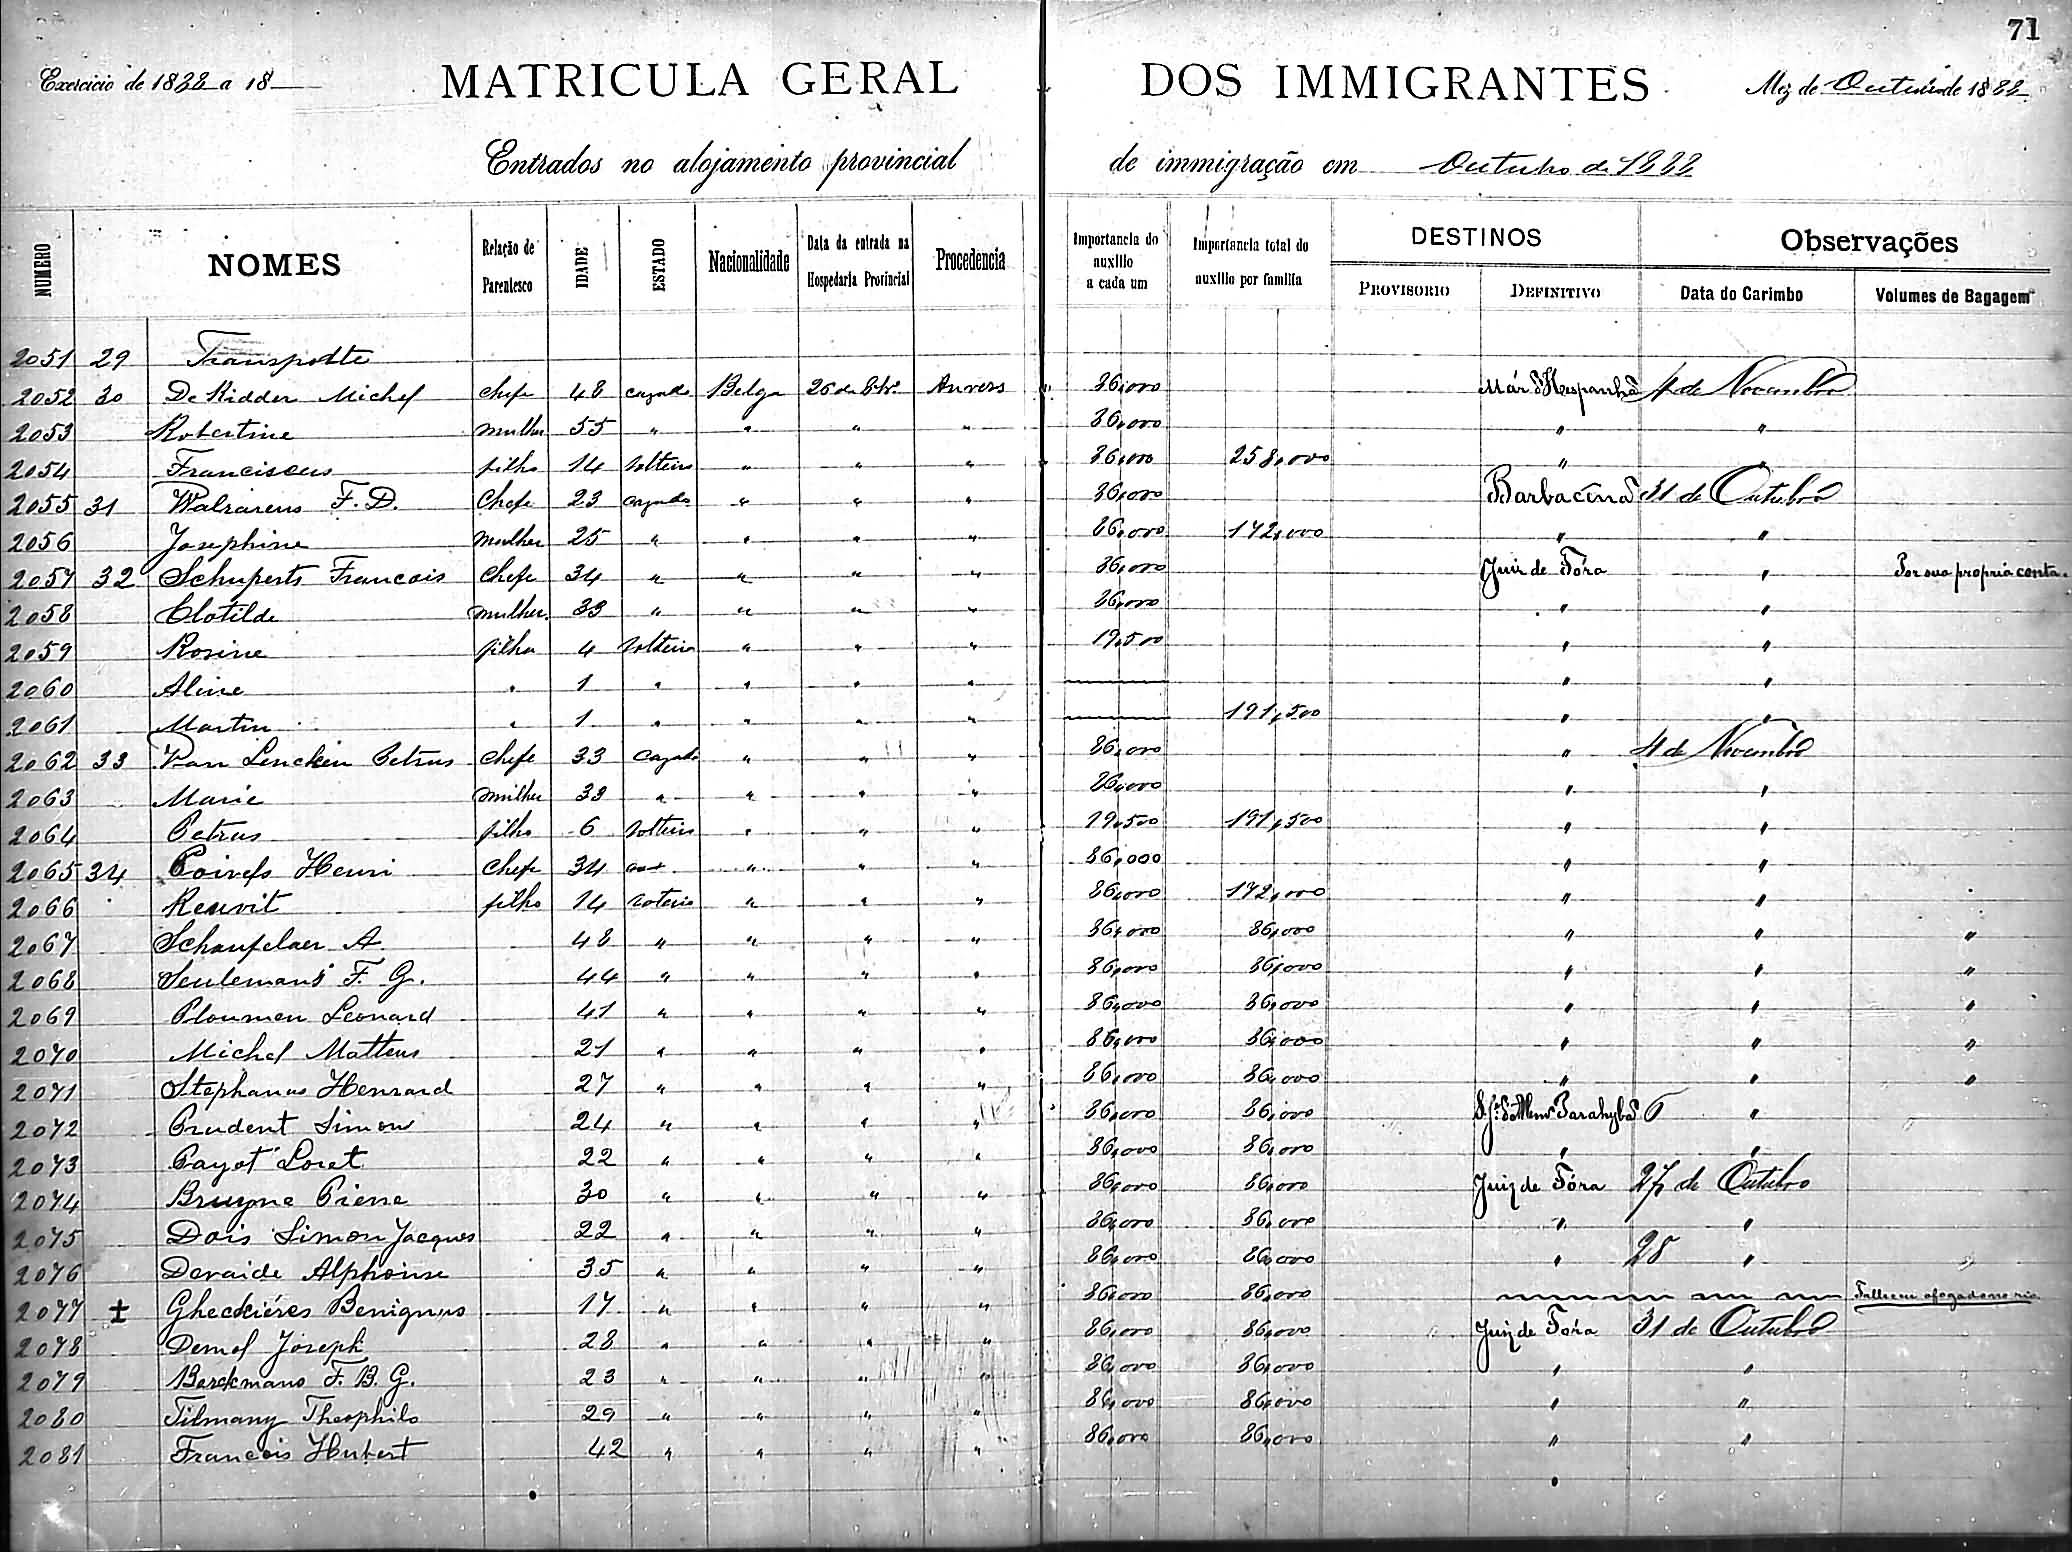 71
Exercicio de 1888 a 18
MATRICULA GERAL DOS IMMIGRANTES
Mez de Outubro de 1888
Entrados no alojamento provincial de immigração em Outubro de 1888
NUMERO NOMES Relação de Parentesco IDADE ESTADO Nacionalidade Data da entrada na Hospedaria Provincial Procedencia Importancia do auxilio a cada um Importancia total do auxilio por familia DESTINOS PROVISORIO DEFINITIVO Observações Data do Carimbo Volumes de Bagagem
2051 29 Transporte
2052 30 De Ridder Michel chefe 48 cazado Belga 26 de 8bro Anvers 86,000 Mar d'Hespanha 4 de Novembro
2053 Robertine mulher 55 " " " " 86,000 " "
2054 Franciscus filho 14 solteiro " " " 86,000 258,000 " "
2055 31 Walrarens F. D. Chefe 23 cazado " " " 86,000 Barbacena 31 de Outubro
2056 Josephine mulher 25 " " " " 86,000 172,000 " "
2057 32 Schuperts Francois Chefe 34 " " " " 86,000 Juiz de Fóra " Por sua propria conta.
2058 Clotilde mulher 33 " " " " 86,000 " "
2059 Rosine filha 4 solteira " " " 19,500 " "
2060 Aline " 1 " " " " " "
2061 Martin " 1 " " " " 191,500 " "
2062 33 Van Lencken Petrus chefe 33 cazado " " " 86,000 " 4 de Novembro
2063 Marie mulher 33 " " " " 86,000 " "
2064 Petrus filho 6 solteiro " " " 19,500 191,500 " "
2065 34 Poirels Henri chefe 34 " " " 86,000 " "
2066 Reuvit filho 14 soteiro " " " 86,000 172,000 " "
2067 Schaufelaer A 48 " " " " 86,000 86,000 " " "
2068 Seulemans F. G. 44 " " " " 86,000 86,000 " " "
2069 Ploumen Leonard 41 " " " " 86,000 86,000 " " "
2070 Michel Matteus 21 " " " " 86,000 86,000 " " "
2071 Stephanus Henrard 27 " " " " 86,000 86,000 " " "
2072 Prudent Simon 24 " " " " 86,000 86,000 Parahyba 6 "
2073 Payot Loret 22 " " " " 86,000 86,000 " "
2074 Bruyne Pierre 30 " " " " 86,000 86,000 Juiz de Fóra 27 de Outubro
2075 Dois Simon Jacques 22 " " " " 86,000 86,000 " "
2076 Devaide Alphonse 35 " " " " 86,000 86,000 " 28 "
2077 ± Gheckiéres Benignus 17 " " " " 86,000 86,000 Falleceu afogado no rio
2078 Demol Joseph 28 " " " " 86,000 86,000 Juiz de Fóra 31 de Outubro
2079 Berckmans F. B. G. 23 " " " " 86,000 86,000 " "
2080 Tilmany Theophilo 29 " " " " 86,000 86,000 " "
2081 Francois Hubert 42 " " " " 86,000 86,000 " "